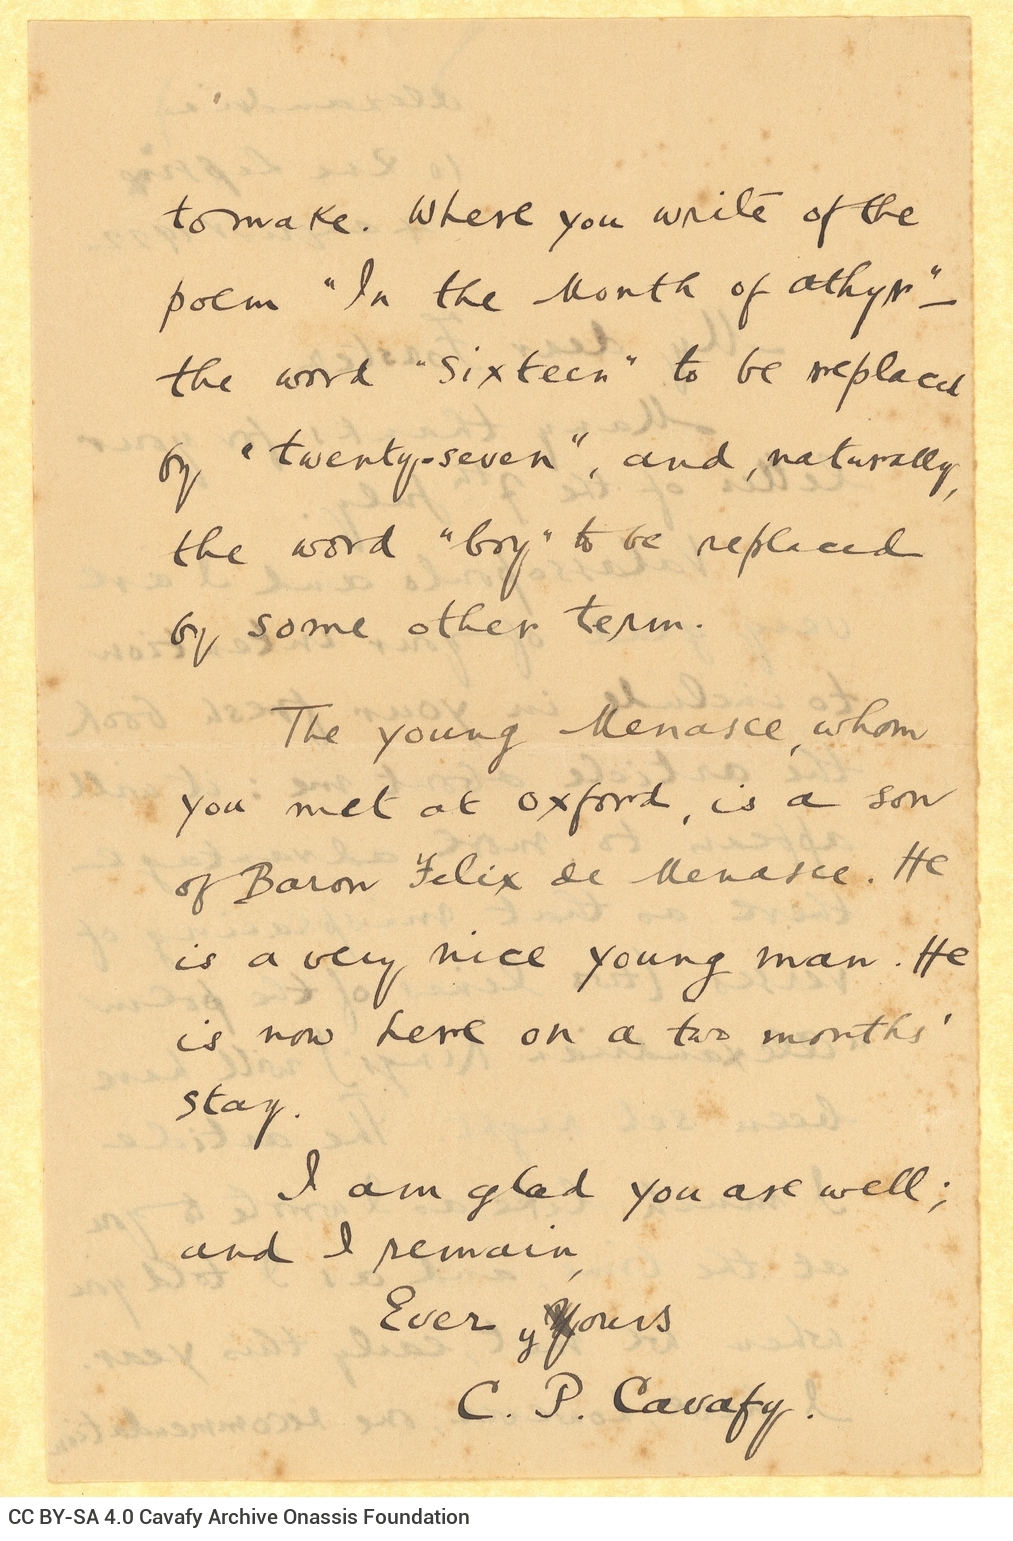 to make. Where you write of the
poem "In the Month of Athyr"—
the word "sixteen" to be replaced
by "twenty-seven", and, naturally,
the word "boy" to be replaced
by some other term.
The young Menasce, whom
you met at Oxford, is a son
of Baron Felix de Menasce. He
is a very nice young man. He
is now here on a two months'
stay.
I am glad you are well;
and I remain,
Ever yours
C. P. Cavafy.
CC BY-SA 4.0 Cavafy Archive Onassis Foundation